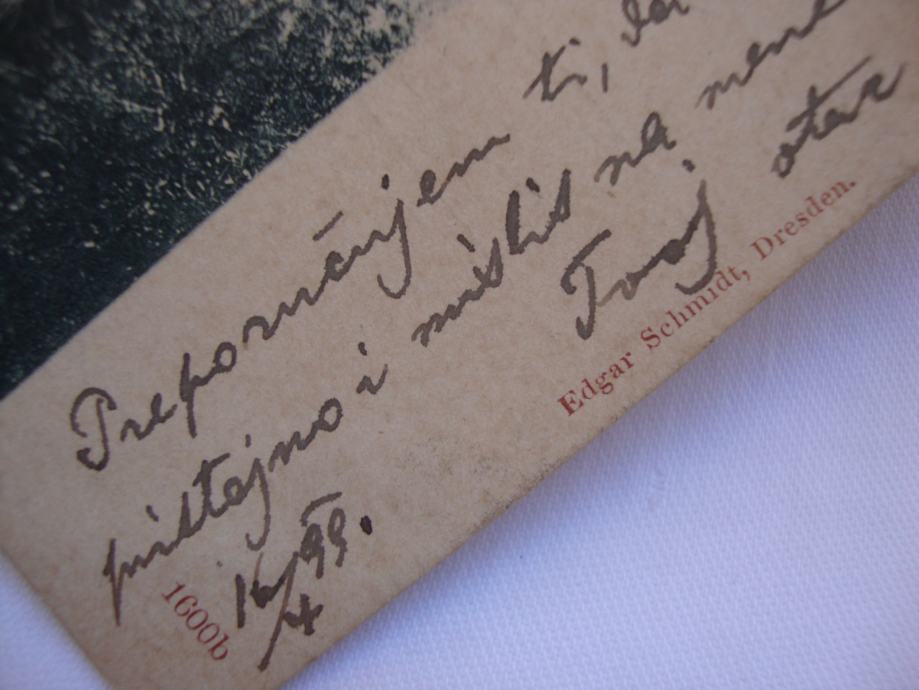 Preporučujem ti, da
pristojno i misliš na mene
Tvoj otac
16/4 99.
Edgar Schmidt, Dresden.
1600b